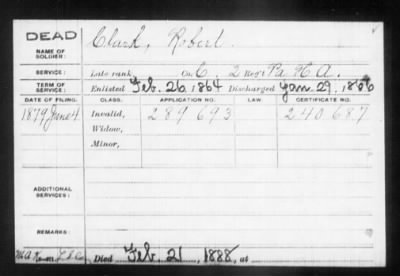 DEAD
NAME OF SOLDIER: Clark, Robert.
SERVICE: Late rank, Co. C, 2 Reg't Pa. H A.
TERM OF SERVICE: Enlisted Feb. 26, 1864 Discharged Jan. 29, 1866
DATE OF FILING. CLASS. APPLICATION NO. LAW. CERTIFICATE NO.
1879 June 4 Invalid, 289 693 240 687
Widow,
Minor,
ADDITIONAL SERVICES:
REMARKS:
Died Feb. 21, 1888, at